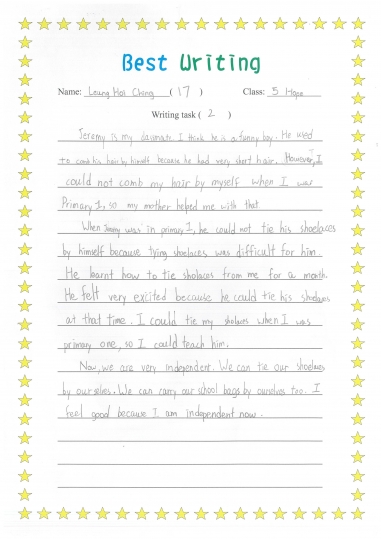 Best Writing
Name: Leung Hoi Ching ( 17 ) Class: 5 Hope
Writing task ( 2 )
Jeremy is my classmate. I think he is a funny boy. He used
to comb his hair by himself because he had very short hair. However, I
could not comb my hair by myself when I was
Primary 1, so my mother helped me with that.
When Jeremy was in primary 1, he could not tie his shoelaces
by himself because tying shoelaces was difficult for him.
He learnt how to tie shoelaces from me for a month.
He felt very excited because he could tie his shoelaces
at that time. I could tie my shoelaces when I was
primary one, so I could teach him.
Now, we are very independent. We can tie our shoelaces
by ourselves. We can carry our school bags by ourselves too. I
feel good because I am independent now.